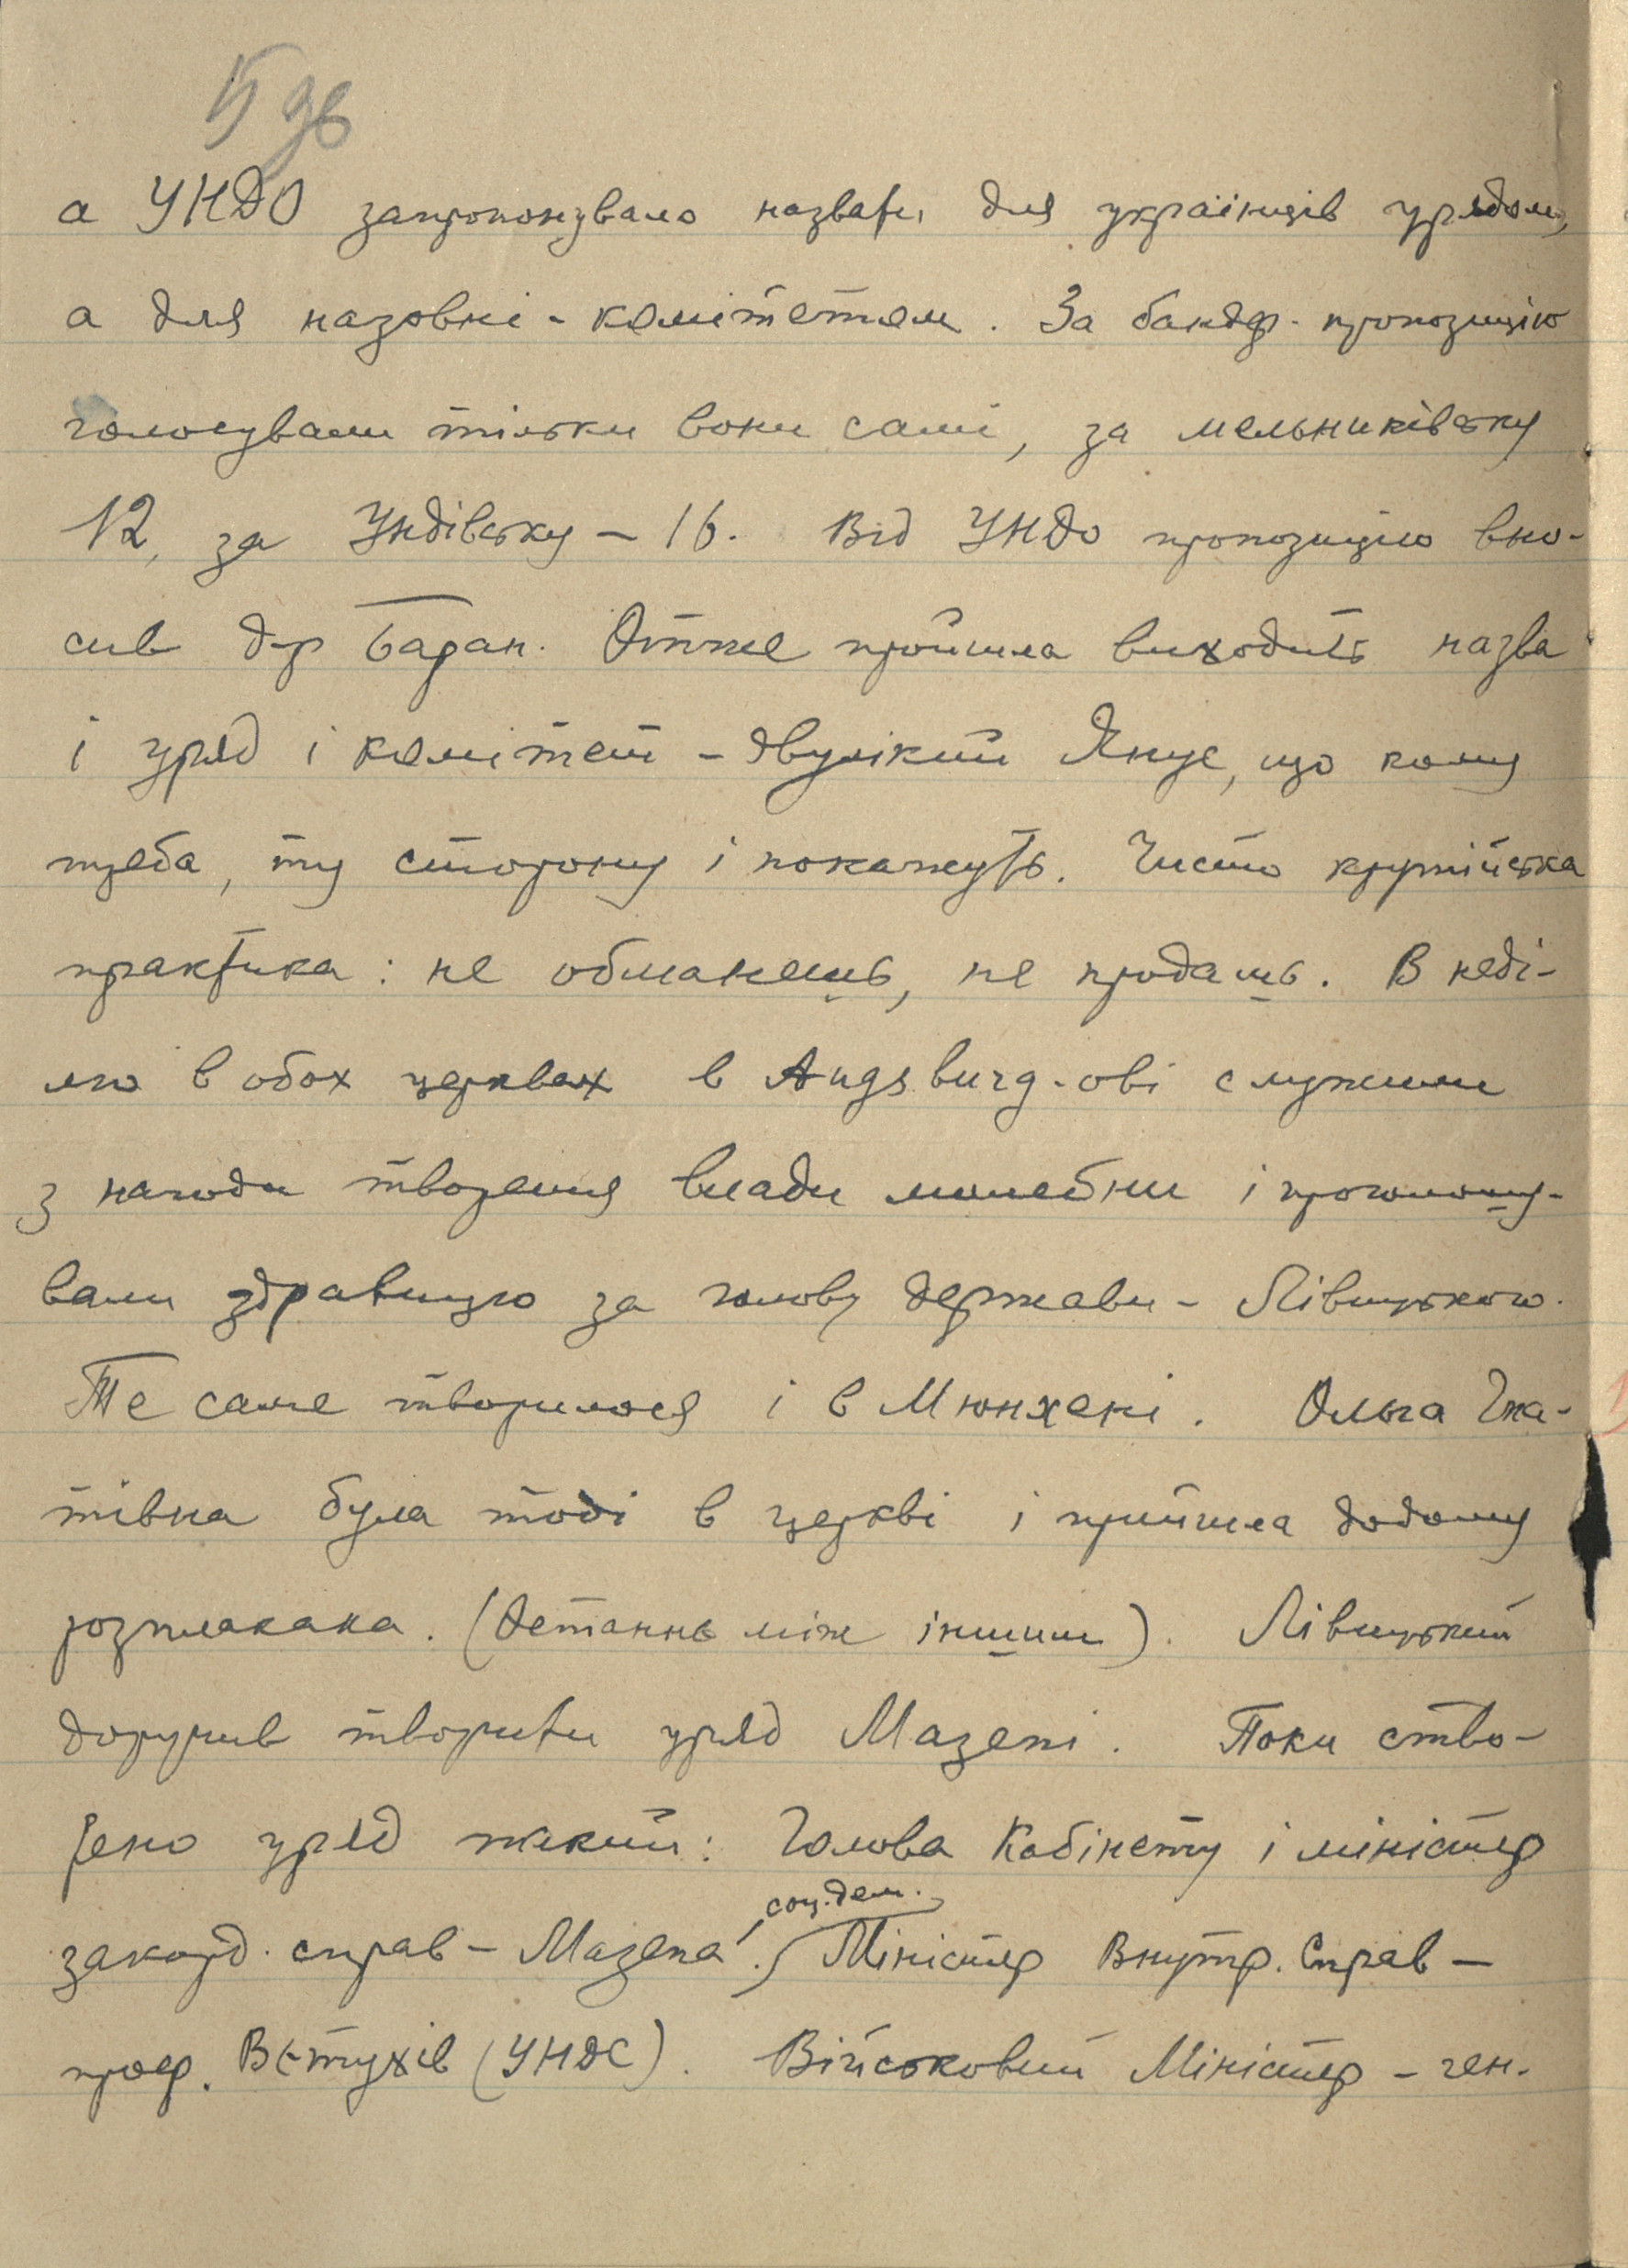 5 зв
а УНДО запропонувало назвати для українців урядом,
а для назовні - комітетом. За бандр. пропозицію
голосували тільки вони самі, за мельниківську
12, за Ундівську - 16. Від УНДО пропозицію вно-
сив д-р Баран. Отже пройшла виходить назва
і уряд і комітет - двулікий Янус, що кому
треба, ту сторону і покажуть. Чисто крутійська
практика: не обманешь, не продашь. В неді-
лю в обох церквах в Augsburg-ові служили
з нагоди творення влади молебни і проголошу-
вали здравицю за голову держави - Лівицького.
Те саме творилося і в Мюнхені. Ольга Гна-
тівна була тоді в церкві і прийшла додому
розплакана. (Останнє між іншим). Лівицький
доручив творити уряд Мазепі. Поки ство-
рено уряд такий: Голова Кабінету і міністр
закорд. справ - Мазепа, соц.дем. Міністр Внутр. Справ -
проф. Вєтухів (УНДС). Військовий Міністр - ген.